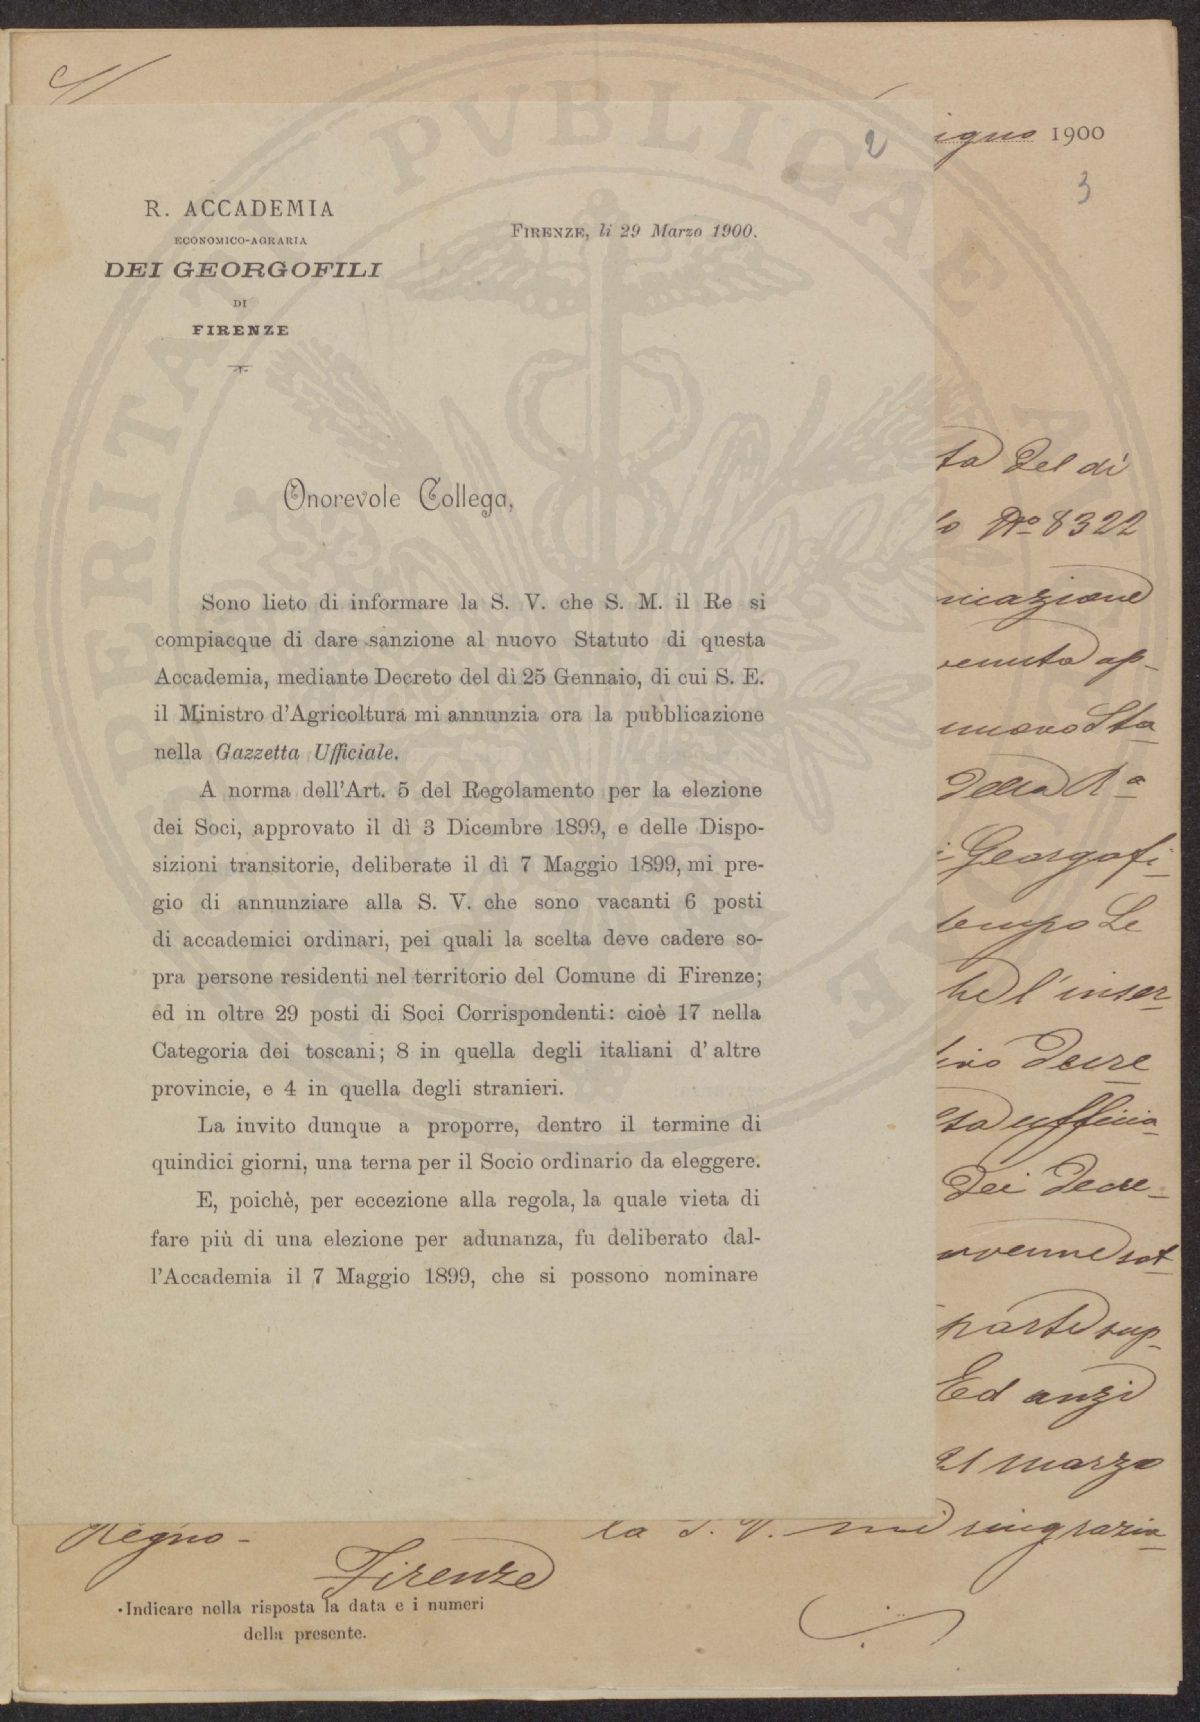 2
R. ACCADEMIA
ECONOMICO-AGRARIA
DEI GEORGOFILI
DI
FIRENZE
FIRENZE, li 29 Marzo 1900.
Onorevole Collega,
Sono lieto di informare la S. V. che S. M. il Re si
compiacque di dare sanzione al nuovo Statuto di questa
Accademia, mediante Decreto del dì 25 Gennaio, di cui S. E.
il Ministro d'Agricoltura mi annunzia ora la pubblicazione
nella Gazzetta Ufficiale.
A norma dell'Art. 5 del Regolamento per la elezione
dei Soci, approvato il dì 3 Dicembre 1899, e delle Dispo-
sizioni transitorie, deliberate il dì 7 Maggio 1899, mi pre-
gio di annunziare alla S. V. che sono vacanti 6 posti
di accademici ordinari, pei quali la scelta deve cadere so-
pra persone residenti nel territorio del Comune di Firenze;
ed in oltre 29 posti di Soci Corrispondenti: cioè 17 nella
Categoria dei toscani; 8 in quella degli italiani d'altre
provincie, e 4 in quella degli stranieri.
La invito dunque a proporre, dentro il termine di
quindici giorni, una terna per il Socio ordinario da eleggere.
E, poichè, per eccezione alla regola, la quale vieta di
fare più di una elezione per adunanza, fu deliberato dal-
l'Accademia il 7 Maggio 1899, che si possono nominare
igno 1900
3
ta del dì
lo No 8322
nicazione
venuta ap-
nuovo Sta
della Ra
i Georgofi-
tempo Le
he l'inser
tivo Decre
ta ufficia-
dei Decre-
vvenne sot
parte sup-
Ed anzi
21 marzo
la S. V. mi ringrazia-
Regno-
Firenze
Indicare nella risposta la data e i numeri
della presente.
PERITAT
PVBLICAE